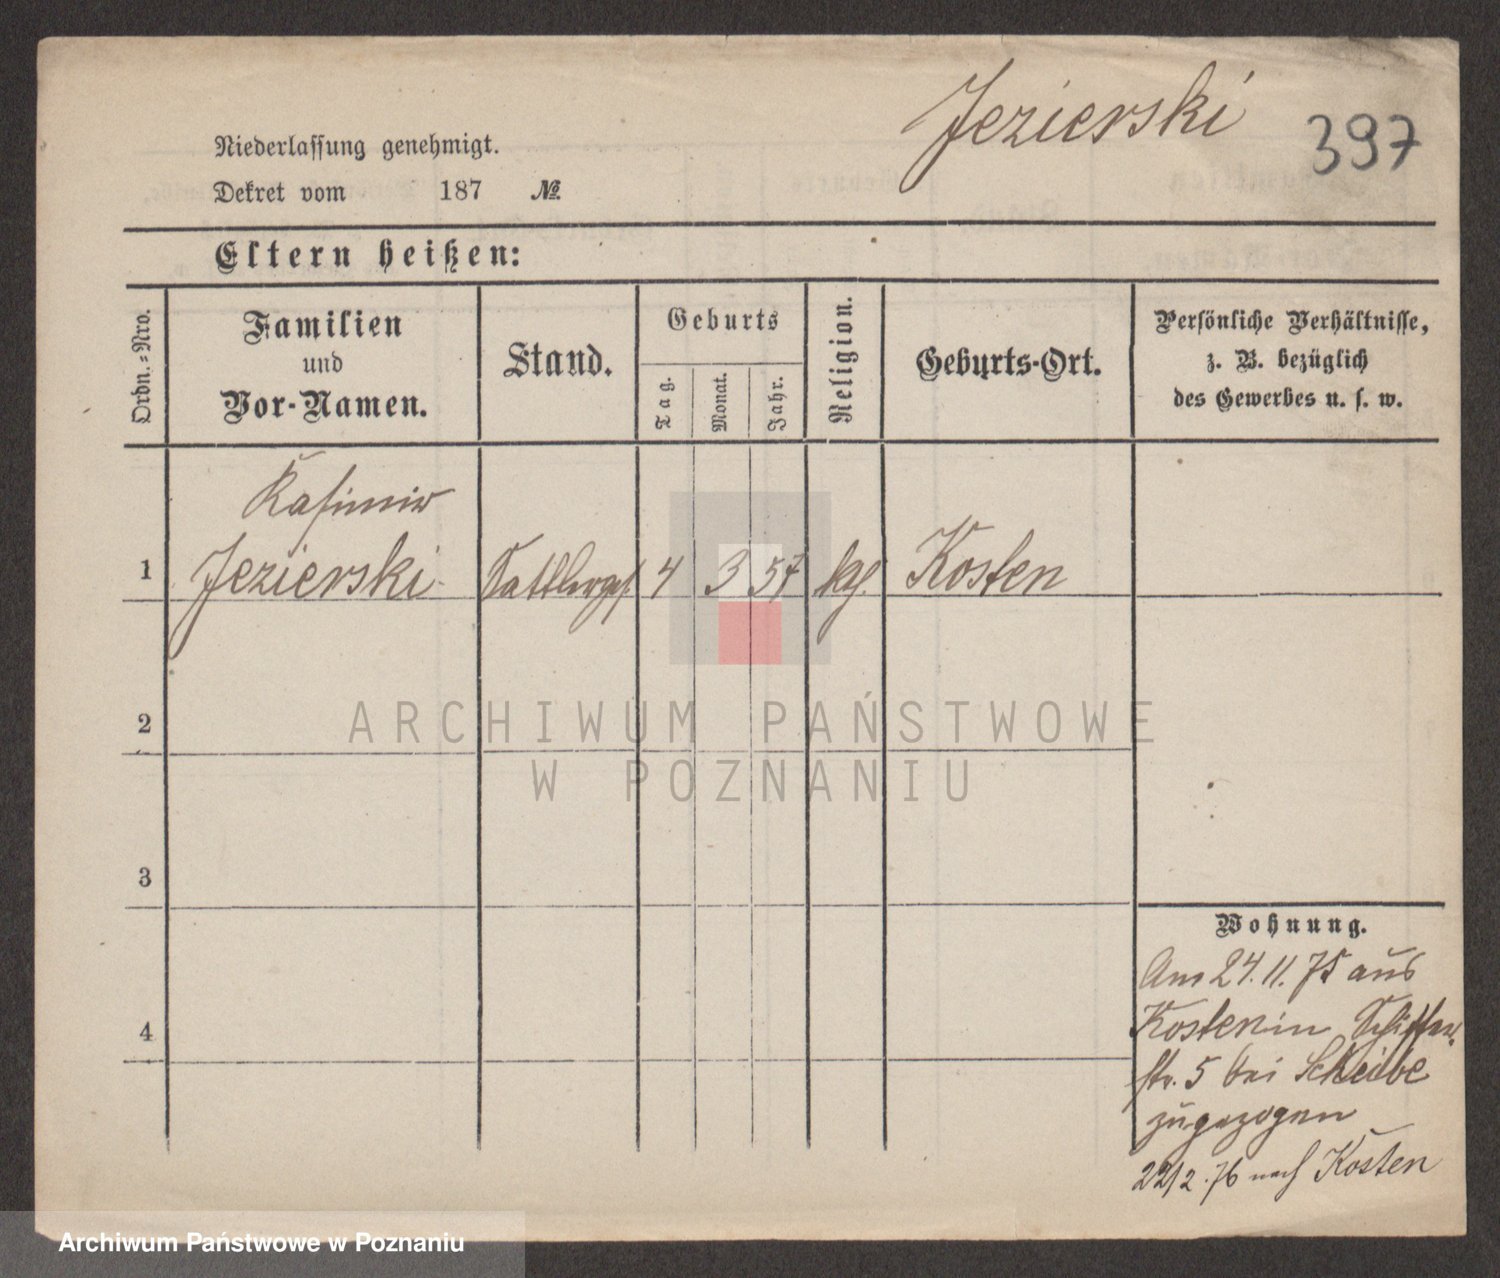 Jezierski
397
Niederlassung genehmigt.
Dekret vom 187 №
Eltern heißen:
Ordn.=Nro.
Familien
und
Vor-Namen.
Stand.
Geburts
Tag.
Monat.
Jahr.
Religion.
Geburts-Ort.
Persönliche Verhältnisse,
z. B. bezüglich
des Gewerbes u. s. w.
Kasimir
1 Jezierski Sattlerges. 4 3 57 kg. Kosten
2
3
4
Wohnung.
Am 24.11.75 aus
Kosten in Schiffer
str. 5 bei Scheibe
zugezogen
76 nach Kosten
ARCHIWUM PAŃSTWOWE
W POZNANIU
Archiwum Państwowe w Poznaniu